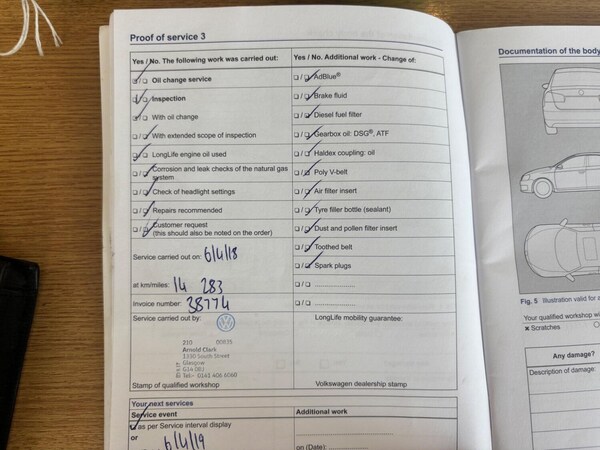 Proof of service 3
Yes / No. The following work was carried out:
Oil change service
Inspection
With oil change
With extended scope of inspection
LongLife engine oil used
Corrosion and leak checks of the natural gas
system
Check of headlight settings
Repairs recommended
Customer request
(this should also be noted on the order)
Service carried out on: 6/4/18
at km/miles: 14 283
Invoice number: 38774
Service carried out by:
210
Arnold Clark
1330 South Street
Glasgow
G14 0BJ
Tel:- 0141 406 6060
Stamp of qualified workshop
Yes / No. Additional work - Change of:
AdBlue®
Brake fluid
Diesel fuel filter
Gearbox oil: DSG®, ATF
Haldex coupling: oil
Poly V-belt
Air filter insert
Tyre filler bottle (sealant)
Dust and pollen filter insert
Toothed belt
Spark plugs
LongLife mobility guarantee:
Volkswagen dealership stamp
Your next services
Service event
as per Service interval display
or
6/4/19
Additional work
on (Date):
Documentation of the body
Fig. 5 Illustration valid for a
Your qualified workshop wi
Scratches
Any damage?
Description of damage: